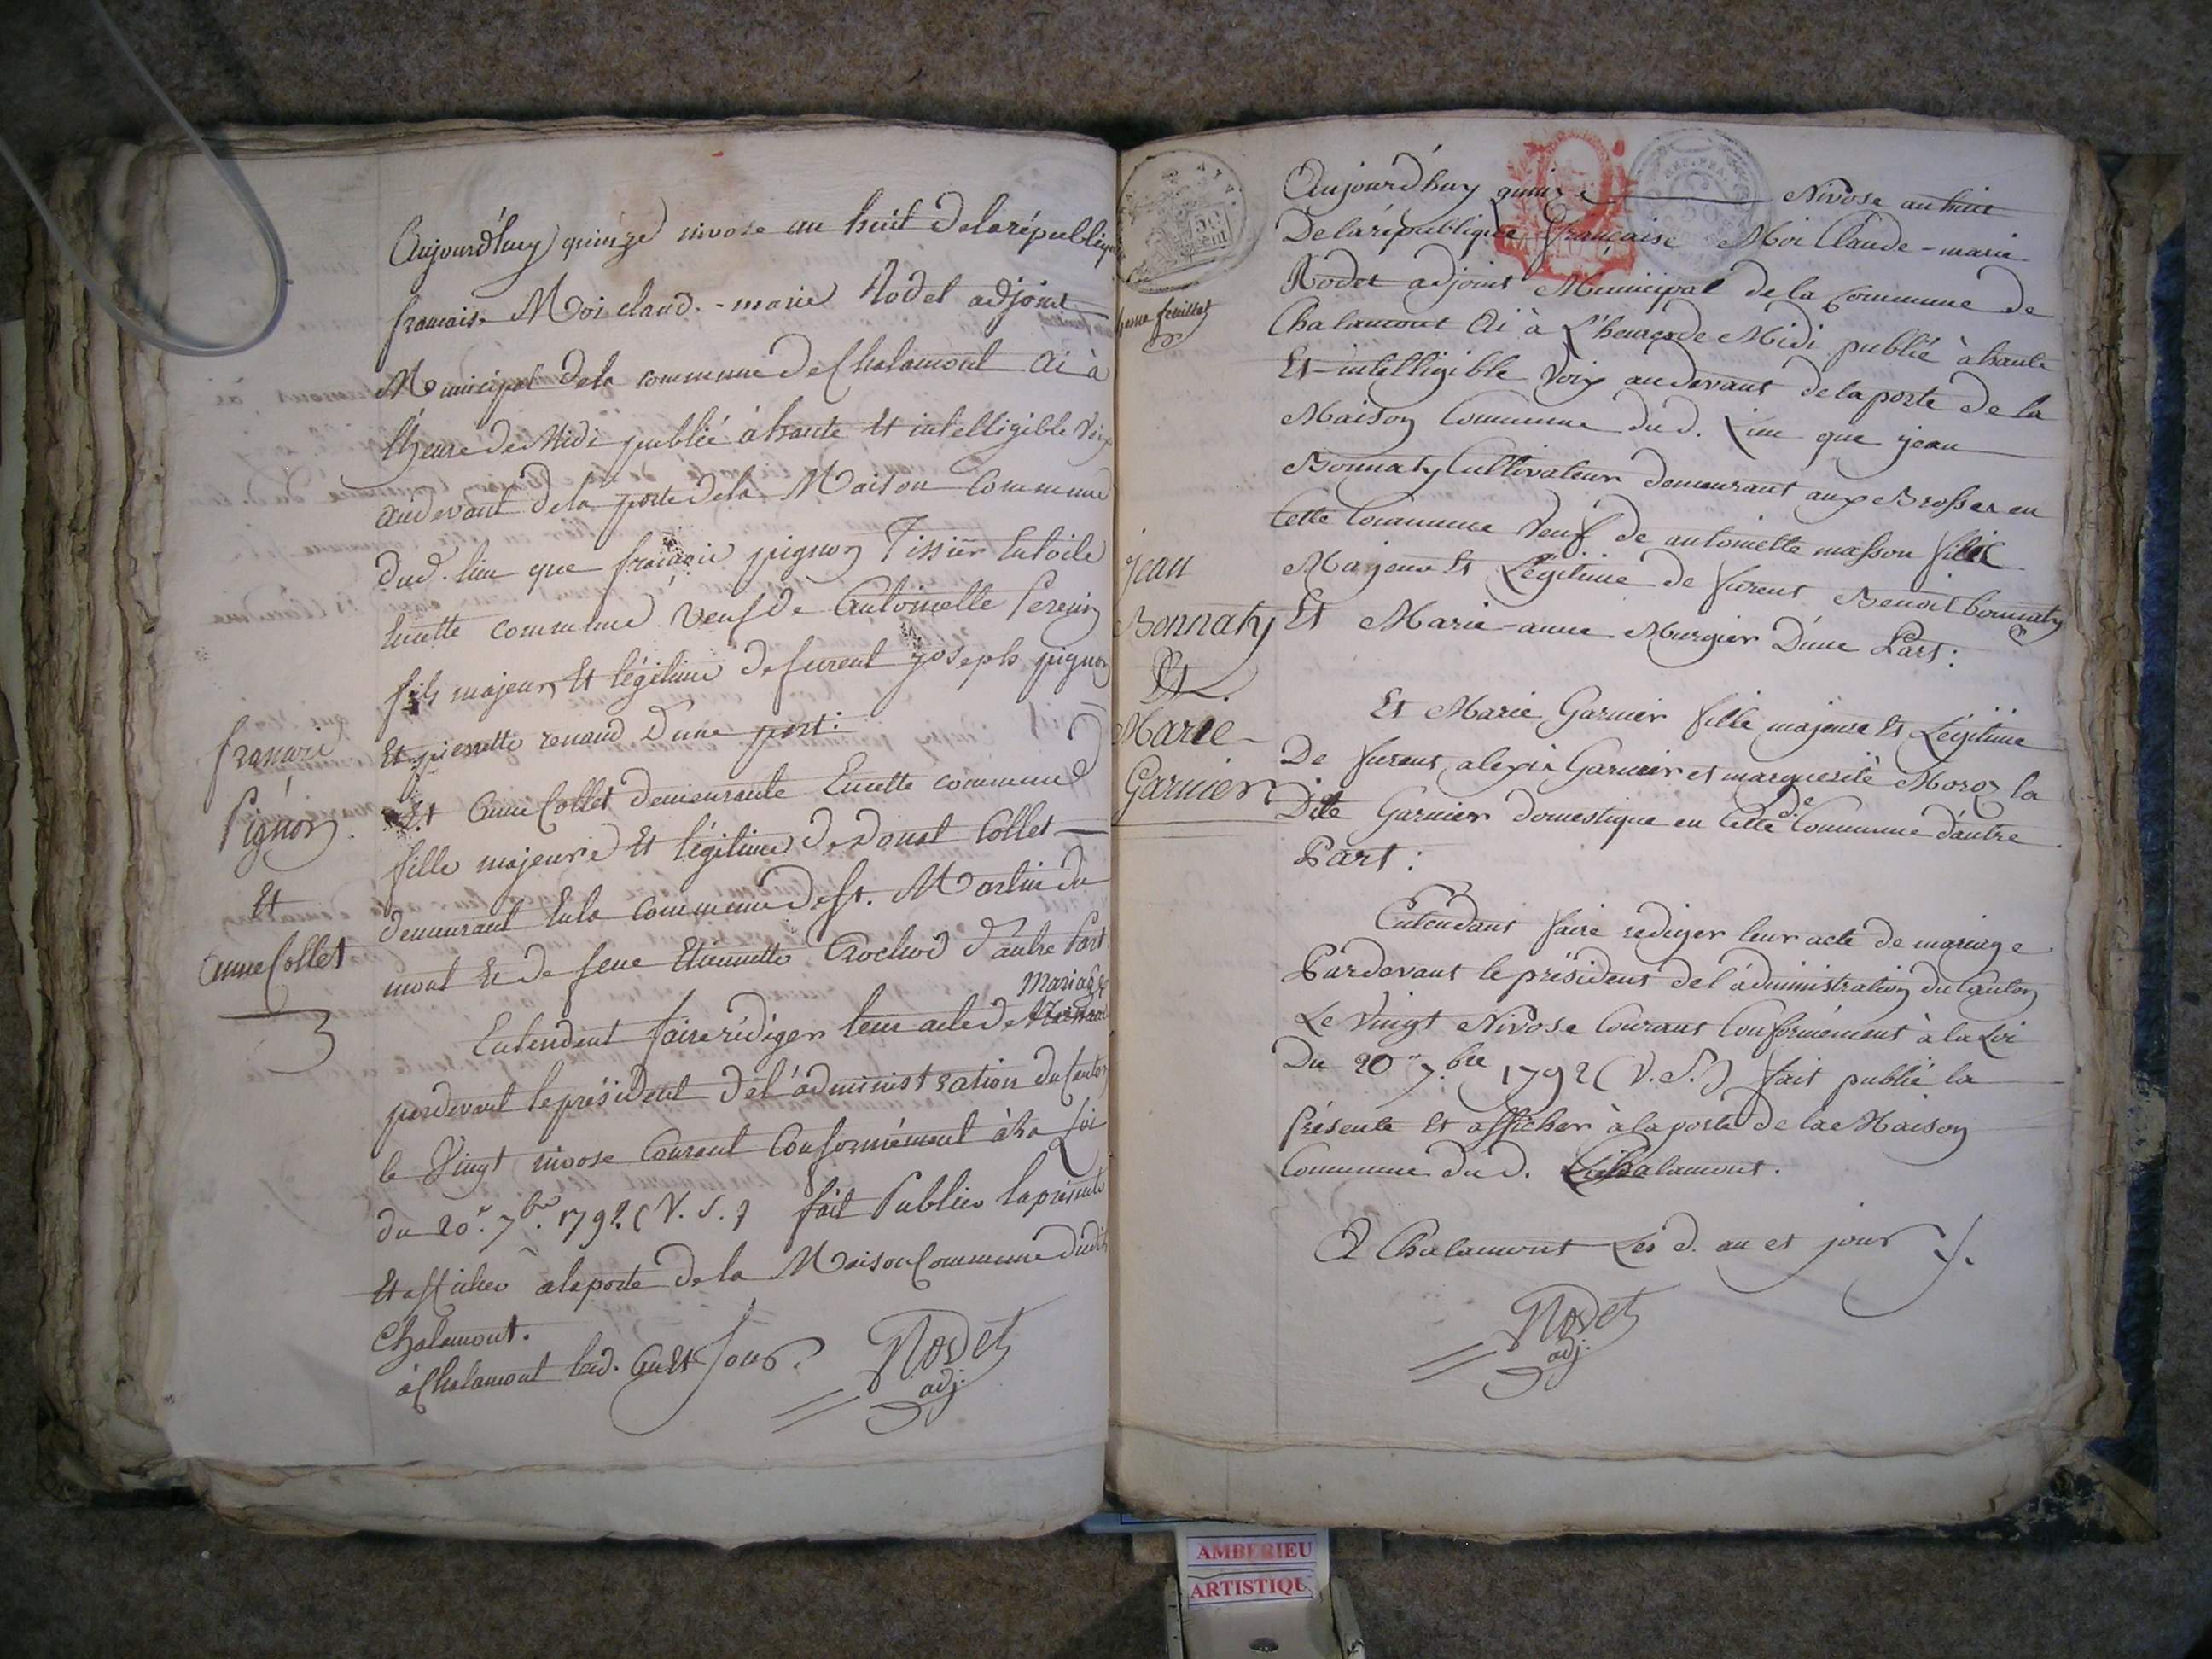 Aujourd'huy quinze nivose an huit de la république
francaise Moi claud.-marie Rodet adjoint
Municipal de la commune de Chalamont ai à
l'heure de Midi publié à haute Et intelligible Voix
au devant de la porte de la Maison Commune
dud. lieu que francois pignon Tissier En toile
En cette commune veuf de Antoinette Perenin
fils majeur Et légitime de furent joseph pignon
Et pierrette renaud D'une part:
Et Anne Collet demeurante En cette commune
fille majeure Et légitime de Donat Collet
demeurant En la commune de St. Martin du
mont Et de feue Etiennette Crochod d'autre Part
Mariage
Entendent faire rédiger leur acte de
pardevant le président de l'administration du Canton
le Vingt nivose Courant Conformément à la Loi
du 20.e 7.bre 1792 (V. S.) fait Publier la présente
Et afficher a la porte de la Maison Commune dudit
Chalamont.
à Chalamont led. an Et Jour.
Rodet
adj.
francois
Pignon
Et
Anne Collet
50
feuillet
Aujourd'huy quinze Nivose an huit
De la république française Moi Claude-marie
Rodet adjoint Municipal de la Commune de
Chalamont Ai à L'heure de Midi publié à haute
Et intelligible Voix au devant de la porte de la
Maison Commune du d. Lieu que jean
Bonnaty Cultivateur demeurant aux Brosses en
Cette Commune Veuf de antoinette masson fils
Majeur Et Légitime de furent Benoit bonnaty
Et Marie-anne Murgier D'une Part:
Et Marie Garnier fille majeure Et Légitime
De furent alexis Garnier et marguerite Moroz la
Dite Garnier domestique en Cette de. Commune d'autre
Part:
Entendant faire rediger leur acte de mariage
Pardevant le président de l'administration du Canton
Le Vingt Nivose Courant Conformément à la Loi
Du 20 7.bre 1792 (V. S.) fait publié la
Présente Et afficher à la porte de la Maison
Commune du d. Chalamont.
A Chalamont Les d. an et jour
Rodet
adj.
jean
Bonnaty
Et
Marie
Garnier
AMBERIEU
ARTISTIQU